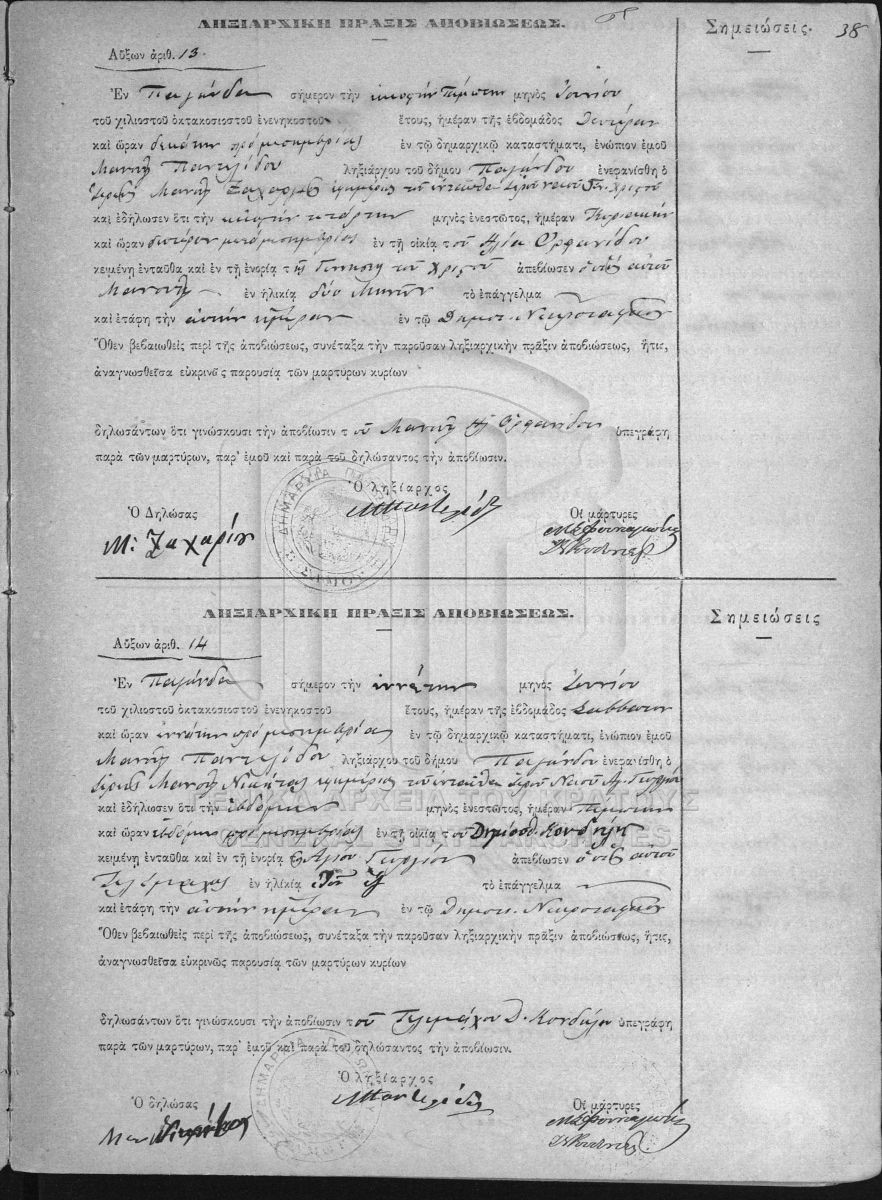 ΛΗΞΙΑΡΧΙΚΗ ΠΡΑΞΙΣ ΑΠΟΒΙΩΣΕΩΣ.
Σημειώσεις.
38
Αὔξων ἀριθ. 13.
Ἐν Παγώνδα σήμερον τὴν εἰκοστὴν πέμπτην μηνὸς Ἰουνίου
τοῦ χιλιοστοῦ ὀκτακοσιοστοῦ ἐνενηκοστοῦ ἔτους, ἡμέραν τῆς ἑβδομάδος Δευτέραν
καὶ ὥραν δεκάτην πρὸ μεσημβρίας ἐν τῷ δημαρχικῷ καταστήματι, ἐνώπιον ἐμοῦ
Μανουὴλ Παντελίδου ληξιάρχου τοῦ δήμου Παγώνδου ἐνεφανίσθη ὁ
ἱερεὺς Μανουὴλ ἐφημέριος τοῦ ἐνταῦθα ἱεροῦ ναοῦ Γεν. Χριστοῦ
καὶ ἐδήλωσεν ὅτι τὴν εἰκοστὴν τετάρτην μηνὸς ἐνεστῶτος, ἡμέραν Κυριακὴν
καὶ ὥραν δευτέραν μετὰ μεσημβρίας ἐν τῇ οἰκίᾳ τοῦ Ηλία Ορφανίδου
κειμένῃ ἐνταῦθα καὶ ἐν τῇ ἐνορίᾳ τῆς Γεννήσεως τοῦ Χριστοῦ ἀπεβίωσεν ὁ υἱὸς αὐτοῦ
Μανουὴλ ἐν ἡλικίᾳ δύο Μηνῶν τὸ ἐπάγγελμα
καὶ ἐτάφη τὴν αὐτὴν ἡμέραν ἐν τῷ Δημοτ. Νεκροταφείῳ
Ὅθεν βεβαιωθεὶς περὶ τῆς ἀποβιώσεως, συνέταξα τὴν παροῦσαν ληξιαρχικὴν πρᾶξιν ἀποβιώσεως, ἥτις,
ἀναγνωσθεῖσα εὐκρινῶς παρουσίᾳ τῶν μαρτύρων κυρίων
δηλωσάντων ὅτι γινώσκουσι τὴν ἀποβίωσιν τοῦ Μανουὴλ Ηλ. Ορφανίδου ὑπεγράφη
παρὰ τῶν μαρτύρων, παρ' ἐμοῦ καὶ παρὰ τοῦ δηλώσαντος τὴν ἀποβίωσιν.
Ὁ ληξίαρχος
Ὁ Δηλώσας
Οἱ μάρτυρες
ΜΠαντελίδης
Μ: Ζαχαρίου
ΛΗΞΙΑΡΧΙΚΗ ΠΡΑΞΙΣ ΑΠΟΒΙΩΣΕΩΣ.
Σημειώσεις
Αὔξων ἀριθ. 14
Ἐν Παγώνδα σήμερον τὴν ἐννάτην μηνὸς Ἰουνίου
τοῦ χιλιοστοῦ ὀκτακοσιοστοῦ ἐνενηκοστοῦ ἔτους, ἡμέραν τῆς ἑβδομάδος Σάββατον
καὶ ὥραν ἐννάτην πρὸ μεσημβρίας ἐν τῷ δημαρχικῷ καταστήματι, ἐνώπιον ἐμοῦ
Μανουὴλ Παντελίδου ληξιάρχου τοῦ δήμου Παγώνδου ἐνεφανίσθη ὁ
ἱερεὺς Μανουὴλ Νικήτας ἐφημέριος τοῦ ἐνταῦθα ἱεροῦ Ναοῦ Αγ. Γεωργίου
καὶ ἐδήλωσεν ὅτι τὴν ἑβδόμην μηνὸς ἐνεστῶτος, ἡμέραν Πέμπτην
καὶ ὥραν ἑβδόμην πρὸ μεσημβρίας ἐν τῇ οἰκίᾳ τοῦ Δημοσθ. Κονδύλη
κειμένῃ ἐνταῦθα καὶ ἐν τῇ ἐνορίᾳ Αγίου Γεωργίου ἀπεβίωσεν ὁ υἱὸς αὐτοῦ
Τηλέμαχος ἐν ἡλικίᾳ τὸ ἐπάγγελμα
καὶ ἐτάφη τὴν αὐτὴν ἡμέραν ἐν τῷ Δημοτ. Νεκροταφείῳ
Ὅθεν βεβαιωθεὶς περὶ τῆς ἀποβιώσεως, συνέταξα τὴν παροῦσαν ληξιαρχικὴν πρᾶξιν ἀποβιώσεως, ἥτις,
ἀναγνωσθεῖσα εὐκρινῶς παρουσίᾳ τῶν μαρτύρων κυρίων
δηλωσάντων ὅτι γινώσκουσι τὴν ἀποβίωσιν τοῦ Τηλεμάχου Δ. Κονδύλη ὑπεγράφη
παρὰ τῶν μαρτύρων, παρ' ἐμοῦ καὶ παρὰ τοῦ δηλώσαντος τὴν ἀποβίωσιν.
Ὁ ληξίαρχος
Ὁ δηλώσας
Οἱ μάρτυρες
ΜΠαντελίδης
GENERAL STATE ARCHIVES